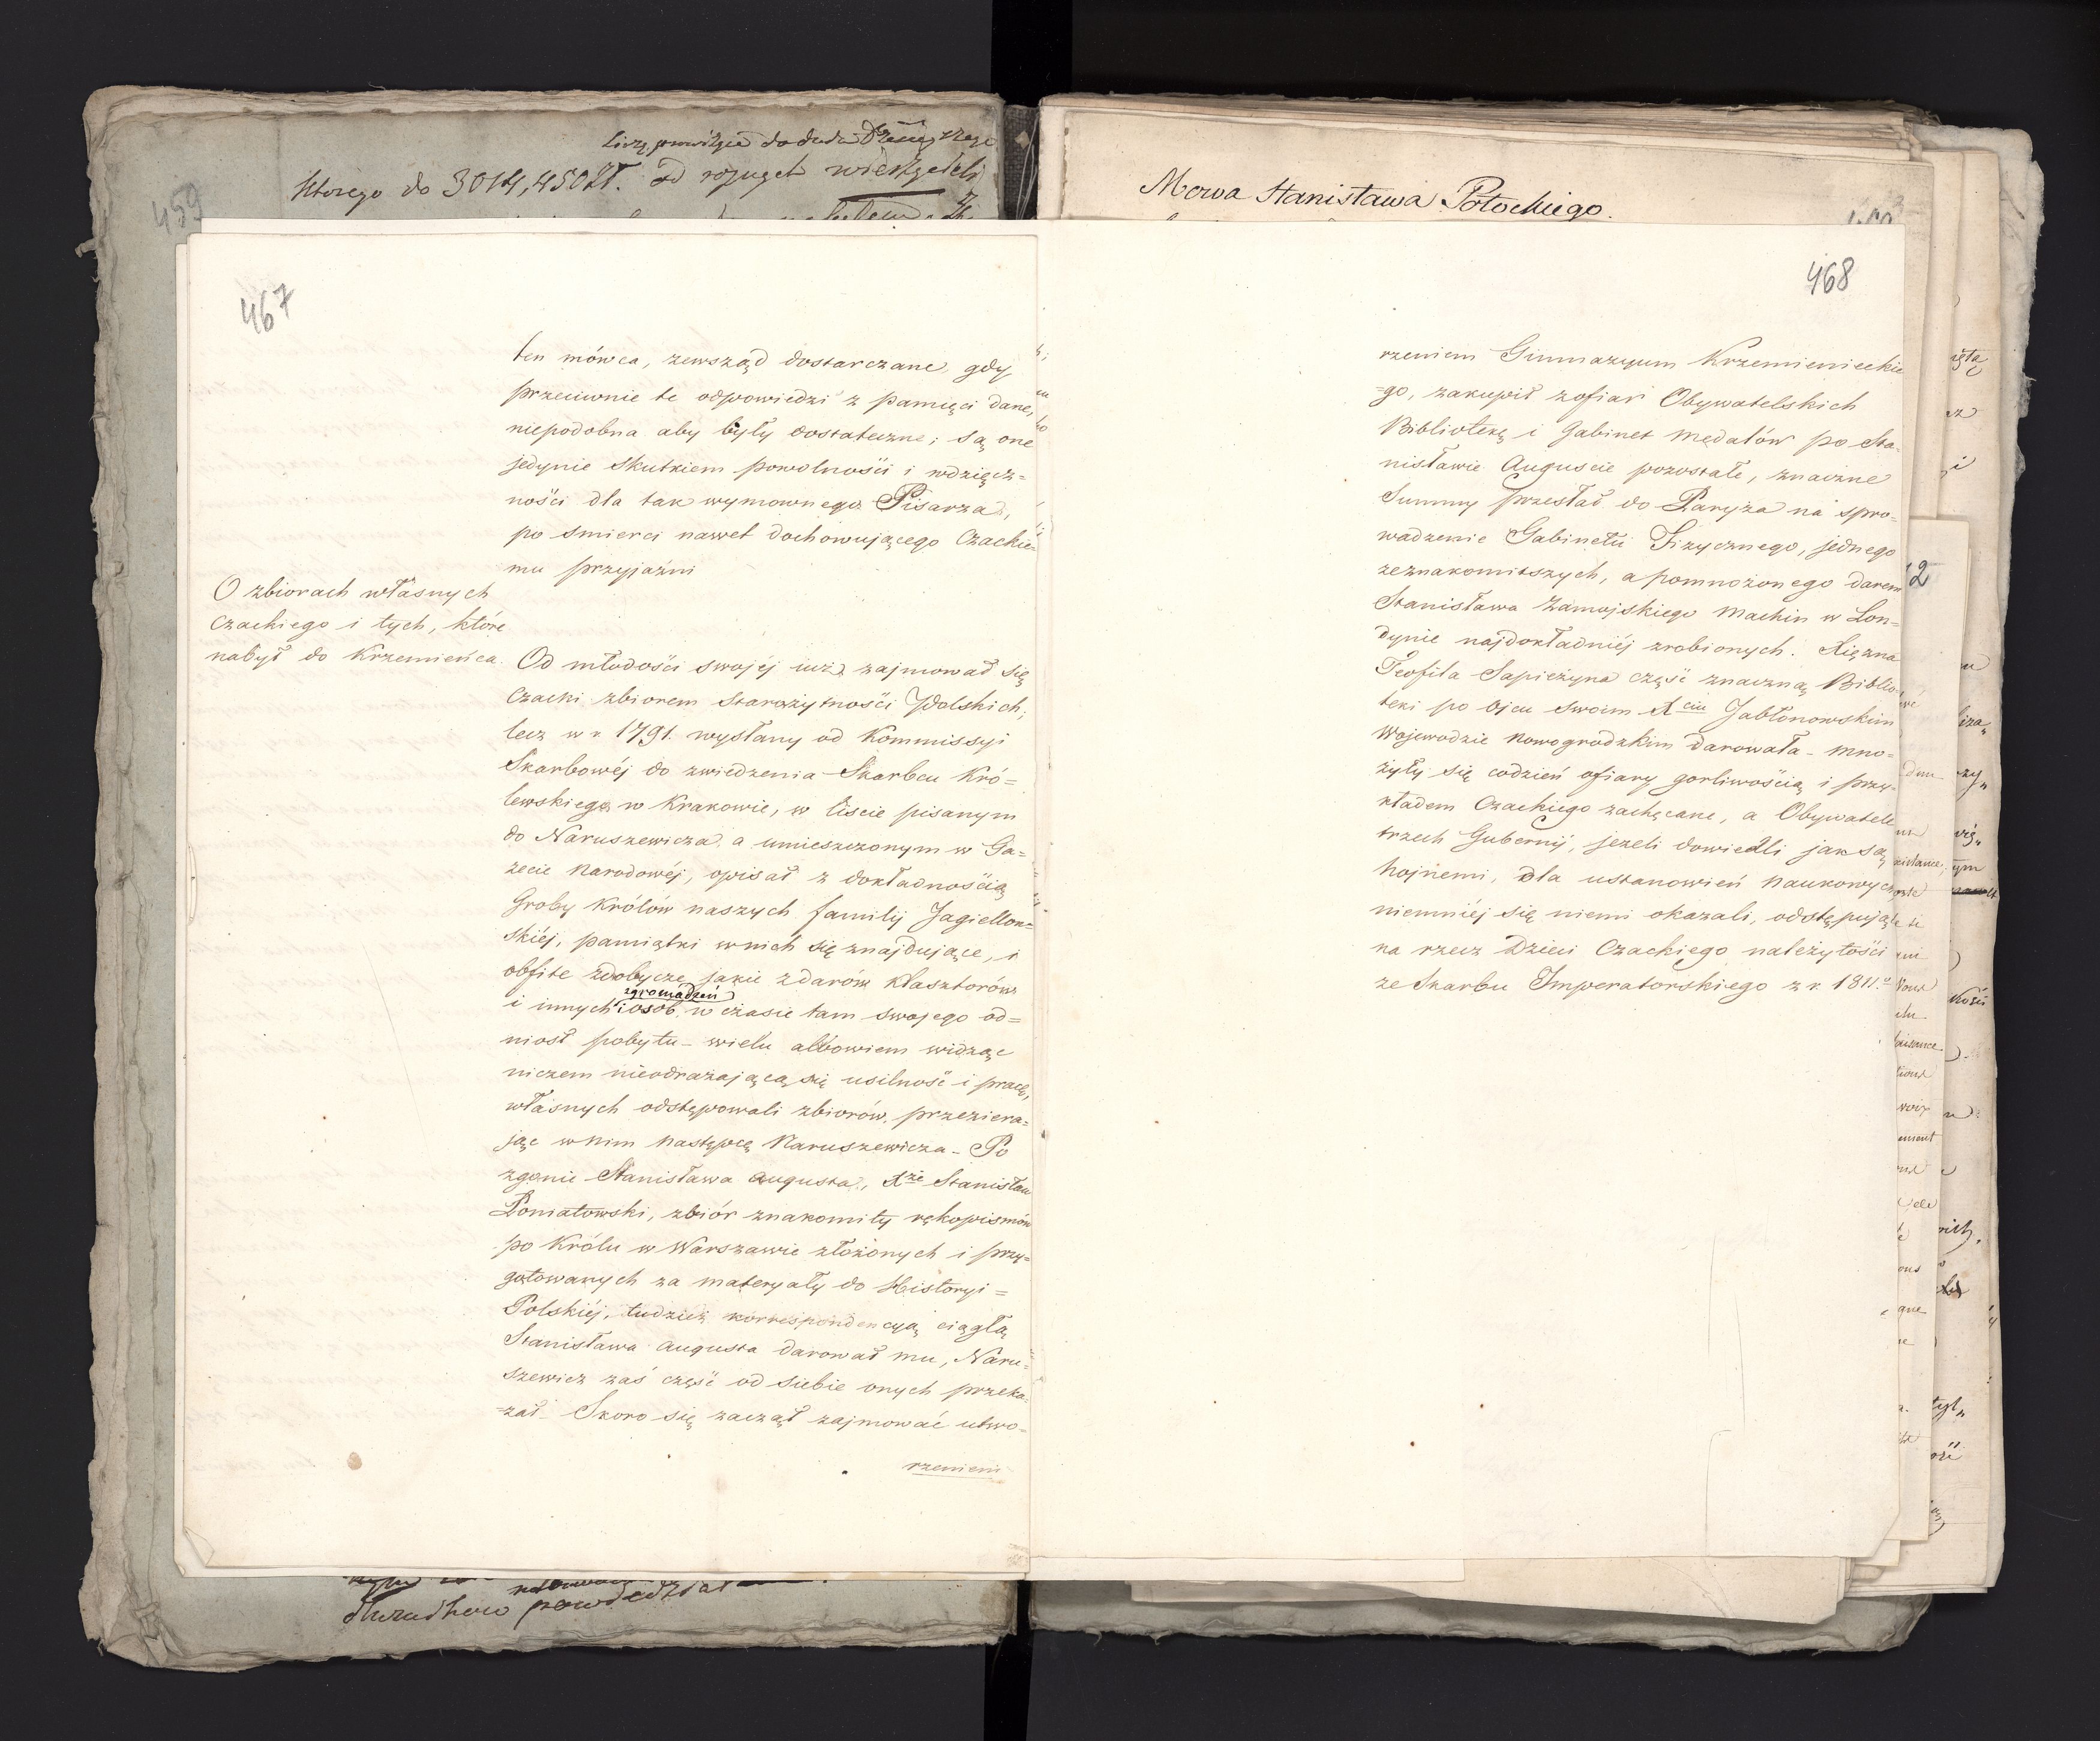 którego do 3014,450 Zł. od
459
467
ten mówca, zewsząd dostarczane, gdy
przeciwnie te odpowiedzi z pamięci dane,
niepodobna aby były dostateczne; są one
jedynie skutkiem powolności i wdzięcz=
ności dla tak wymownego Pisarza,
po smierci nawet dochowującego Czackie=
mu przyjaźni
O zbiorach własnych
Czackiego i tych, które
nabył do Krzemieńca.
Od młodości swojéj iuż zajmował się
Czacki zbiorem Starożytności Polskich;
lecz w r. 1791. wysłany od Kommissyi
Skarbowéj do zwiedzenia Skarbcu Kró=
lewskiego w Krakowie, w liście pisanym
do Naruszewicza, a umieszczonym w Ga=
zecie Narodowéj, opisał z dokładnością
Groby Królów naszych familij Jagiellon=
skiéj, pamiątki w nich się znajdujące, i
obfite zdobycze jakie z darów Klasztorów
zgromadzeń
i innych i osób w czasie tam swojego od=
niosł pobytu – wielu albowiem widząc
niczem nieodrażającą się usilność i pracę,
własnych odstępowali zbiorów, przeziera=
jąc w nim następcę Naruszewicza – Po
zgonie Stanisława Augusta, Xże Stanisław
Poniatowski, zbiór znakomity rękopismów
po Królu w Warszawie złożonych i przy=
gotowanych za materyały do Historyi =
Polskiéj, tudzież korrespondencyą ciągłą
Stanisława Augusta darował mu, Naru=
szewicz zaś część od siebie onych przeka=
=zał – Skoro się zaczął zajmować utwo=
rzeniem
powiedział
Mowa Stanisława Potockiego.
468
rzeniem Gimnazyum Krzemienieckie
=go, zakupił z ofiar Obywatelskich
Bibliotekę i Gabinet medalów po Sta=
nisławie Auguscie pozostałe, znaczne
Summy przesłał do Paryża na spro=
wadzenie Gabinetu Fizycznego, jednego
ze znakomitszych, a pomnożonego darem
Stanisława Zamojskiego Machin w Lon=
dynie najdokładniéj zrobionych. Xiężna
Teofila Sapieżyna część znaczną Biblio=
teki po Ojcu swoim Xciu Jabłonowskim
Wojewodzie Nowogrodzkim darowała – mno=
żyły się codzień ofiary gorliwością i przy=
kładem Czackiego zachęcane, a Obywatele
trzech Gubernij, jeżeli dowiedli jak są
hojnemi, dla ustanowień naukowych
niemniéj się niemi okazali, odstępując
na rzecz Dzieci Czackiego należytości
ze Skarbu Imperatorskiego z r. 1811.º